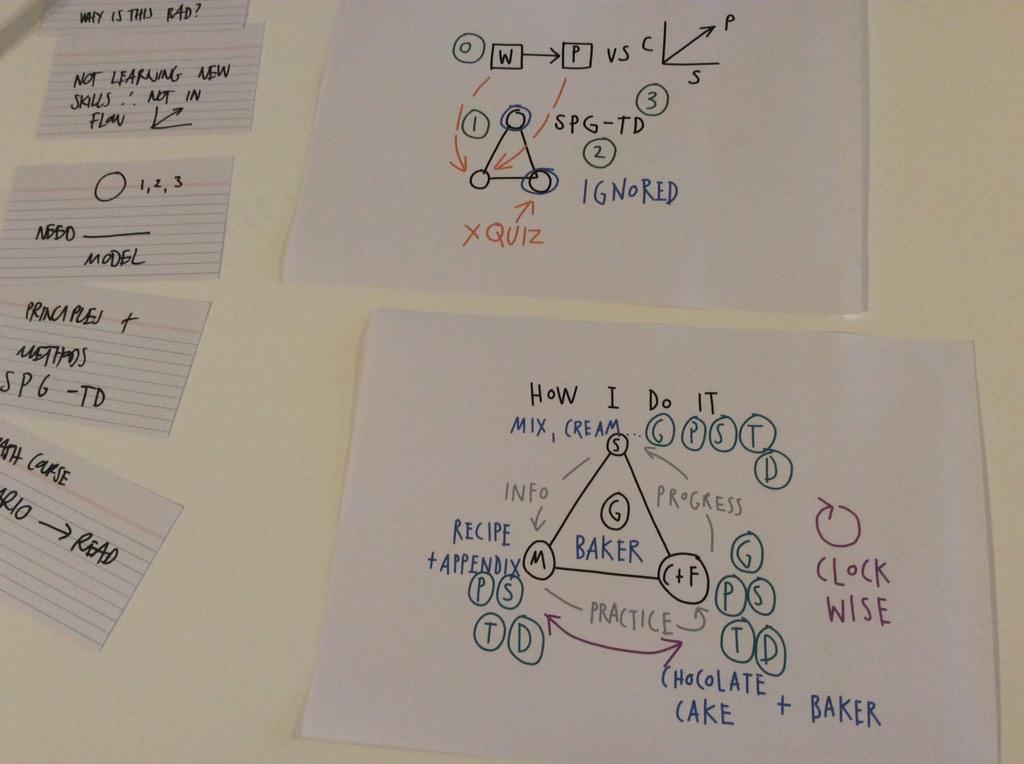 WHY IS THIS BAD?
NOT LEARNING NEW
SKILLS ∴ NOT IN
FLOW
1, 2, 3
NEED
MODEL
PRINCIPLES +
METHODS
SPG - TD
COURSE
→ READ
0 W → P VS C P
S
1 SPG-TD 3
2
IGNORED
X QUIZ
HOW I DO IT
MIX, CREAM... G P S T
D
S
INFO
PROGRESS
G
RECIPE
+ APPENDIX
M
BAKER
C+F
P S
T D
PRACTICE
G
P S
T D
CLOCK
WISE
CHOCOLATE
CAKE + BAKER